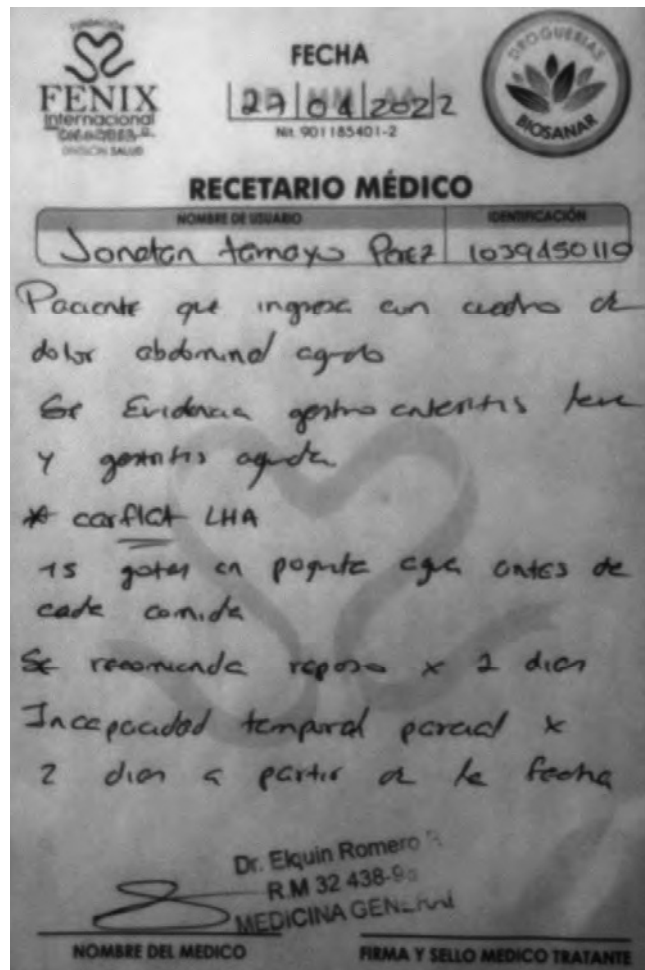 FUNDACIÓN
FENIX
Internacional
DIVISIÓN SALUD
FECHA
27 04 2022
Nit. 901185401-2
DROGUERIAS
BIOSANAR
RECETARIO MÉDICO
NOMBRE DE USUARIO IDENTIFICACIÓN
Jonatan tamayo Perez 1039450110
Paciente que ingresa con cuadro de
dolor abdominal agudo
Se Evidencia gastroenteritis leve
y gastritis aguda
* carflat LHA
15 gotas en poquita agua antes de
cada comida
Se recomienda reposo x 2 dias
Incapacidad temporal parcial x
2 dias a partir de la fecha
Dr. Elquin Romero
R.M 32 438-9
MEDICINA GENERAL
NOMBRE DEL MEDICO FIRMA Y SELLO MEDICO TRATANTE